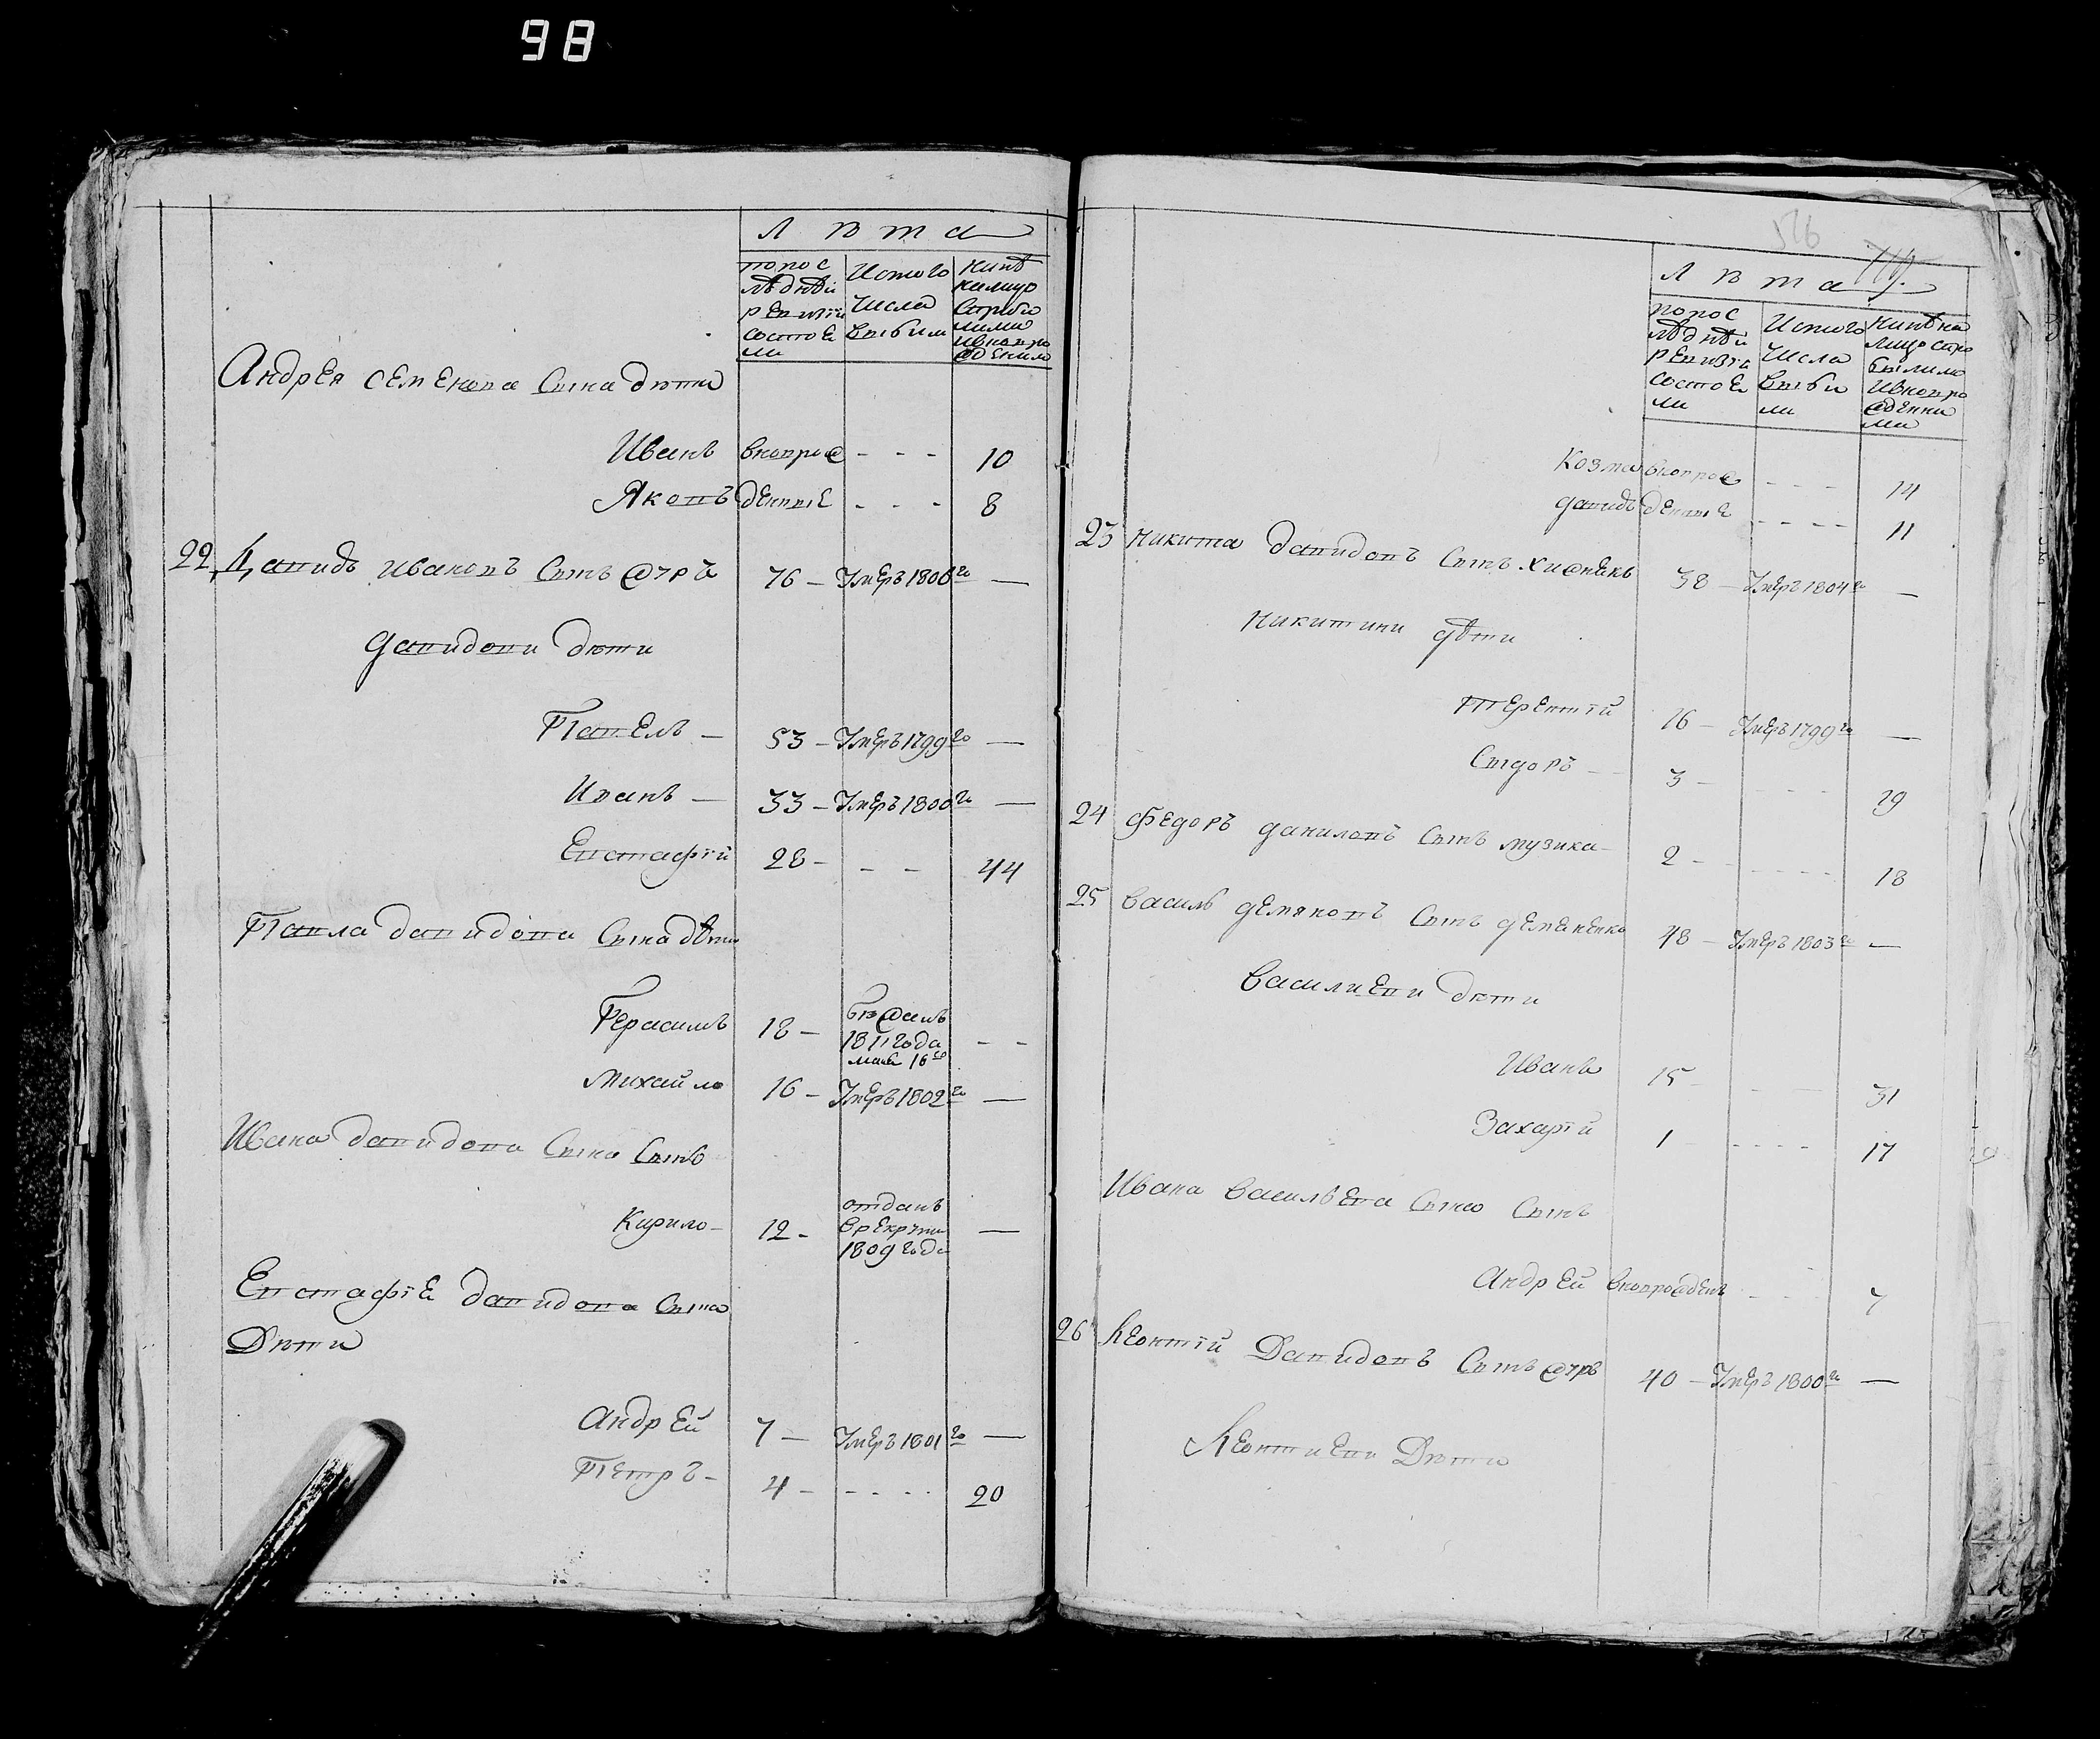 98
Лѣта
по пос
лѣдней
ревизіи
состоя
ли
Истого
числа
выбыли
Нинѣ
налицо
Андрея Семенова Сына дѣти
Иванъ вновро 10
Яковъ денные 8
22 Давидъ Ивановъ Сынъ 76 Умеръ 1806го
Давидови дѣти
Павелъ 53 Умеръ 1799го
Иванъ 33 Умеръ 1800го
Евстафій 28 44
Павла Давидова Сына дѣти
Герасимъ 18
1811 года
16го
Михайло 16 Умеръ 1802го
Ивана Давидова Сына Сынъ
Кирило 12
отданъ
врекруты
1809 года
Евстафіе Давидова Сына
Дѣти
Андрей 7 Умеръ 1801го
Петръ 4 20
516
Лѣта
по пос
лѣдней
ревизіи
состоя
ли
Истого
числа
выбы
ли
Нинѣ на
лицо
Козма вновро 14
Давидъ денные 11
23 Никита Давидовъ Сынъ 38 Умеръ 1804го
Никитини дѣти
Терентій 16 Умеръ 1799го
Сыдоръ 3 19
24 Федоръ Даниловъ Сынъ Музика 2 18
25 Василь Демяновъ Сынъ Демяненко 48 Умеръ 1803го
Василиеви дѣти
Иванъ 15 31
Захарій 1 17
Ивана Васильева Сына Сынъ
Андрей 7
26 Леонтій Давидовъ Сынъ 40 Умеръ 1800го
Леонтиеви Дѣти